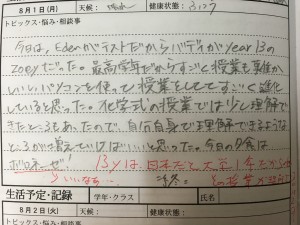 8月1日(月) 天候: 晴れ 健康状態: ふつう
トピックス・悩み・相談事
今日は、Edenがテストだからバディがyear 13の
zoeyだった。最高学年だからすごく授業も集中
いい。パソコンを使って授業をしててすごく進化
していると思った。化学式の授業では少し理解で
きたところもあったので、自分自身で理解できるような
ところが増えていけばいい
と思う。今日の夕食は
ボロネーゼ! 13yは、日本だと大学1年だから
いいなぁ…
生活予定・記録 学年・クラス 氏名
8月2日(火) 天候: 健康状態:
トピックス・悩み・相談事